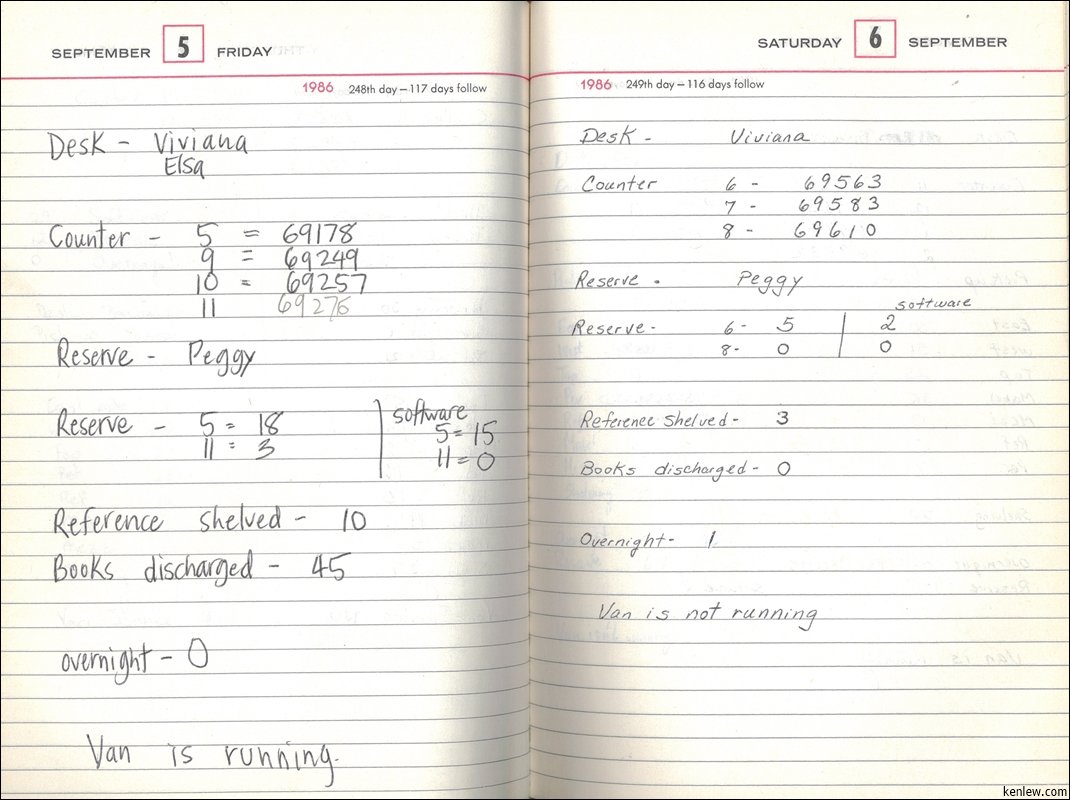 SEPTEMBER 5 FRIDAY
1986 248th day — 117 days follow
Desk - Viviana
Elsa
Counter - 5 = 69178
9 = 69249
10 = 69257
11 69276
Reserve - Peggy
Reserve - 5 = 18
11 = 3
software
5 = 15
11 = 0
Reference shelved - 10
Books discharged - 45
overnight - 0
Van is running.
SATURDAY 6 SEPTEMBER
1986 249th day — 116 days follow
Desk - Viviana
Counter 6 - 69563
7 - 69583
8 - 69610
Reserve - Peggy
software
Reserve - 6 - 5 | 2
8 - 0 | 0
Reference shelved - 3
Books discharged - 0
Overnight - 1
Van is not running
kenlew.com